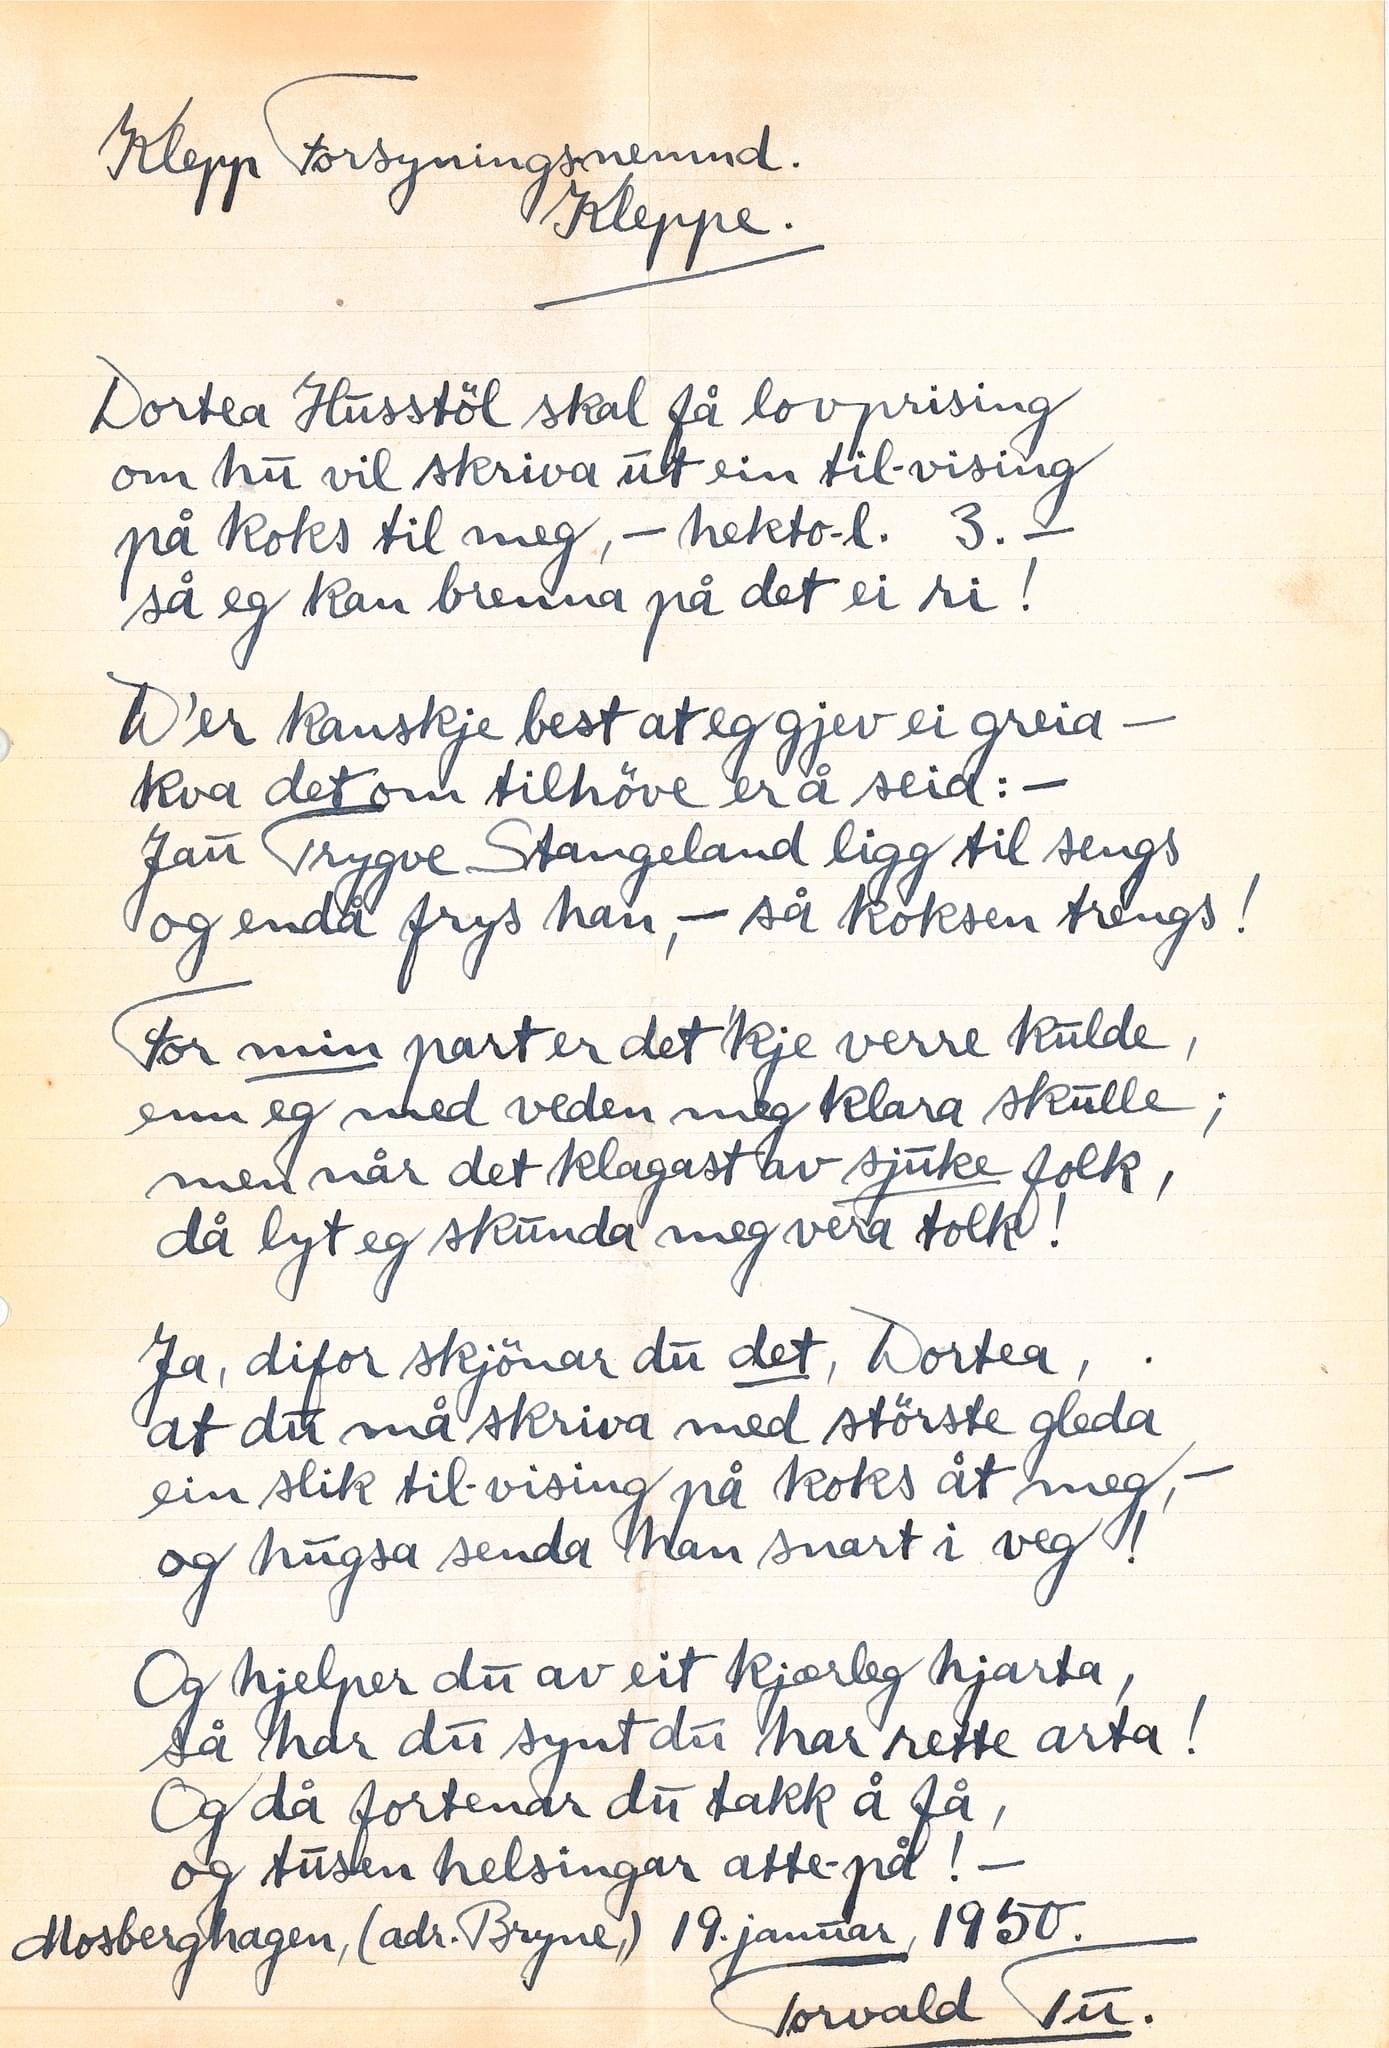 Klepp Forsyningsnemnd.
Kleppe.
Dortea Husstöl skal få lovprising
om hū vil skriva ūt ein til-vising
på koks til meg, – hekto-l. 3. –
så eg kan brenna på det ei ri!
D'er kanskje best at eg gjev ei greia –
kva det om tilhöve er å seia: –
Jau Trygve Stangeland ligg til sengs
og endå frys han, – så koksen trengs!
For min part er det 'kje verre kūlde,
enn eg med veden meg klara skūlle;
men når det klagast av sjūke folk,
då lyt eg skūnda meg vera tolk!
Ja, difor skjönar dū det, Dortea,
at dū må skriva med störste gleda
ein slik til-vising på koks åt meg, –
og hūgsa senda han snart i veg!
Og hjelper dū av eit kjærleg hjarta,
så har dū synt dū har rette arta!
Og då fortenar dū takk å få,
og tūsen helsingar atte-på! –
Mosberghagen, (adr. Bryne,) 19. janūar, 1950.
Torvald Tū.